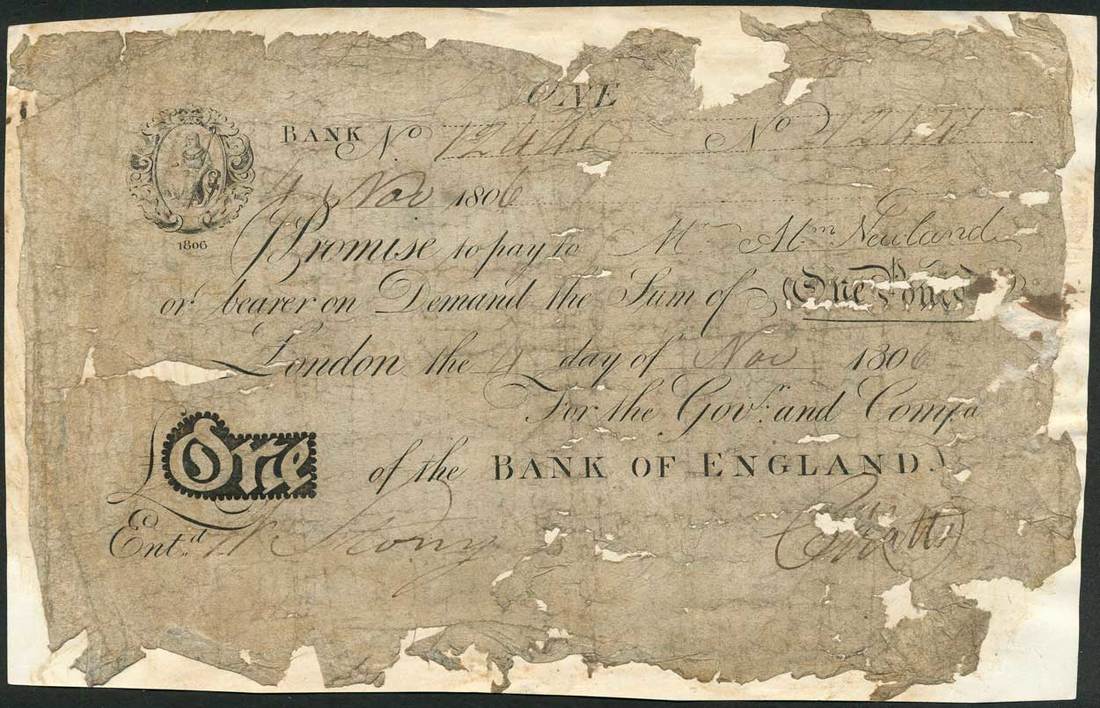 ONE
BANK No 12446 No
4 Nov 1806
1806
Promise to pay to Mr Abm Newland
or bearer on Demand the Sum of One Pound
London the 4 day of Nov 1806
For the Govr. and Compa
£One of the BANK OF ENGLAND.
Entd.